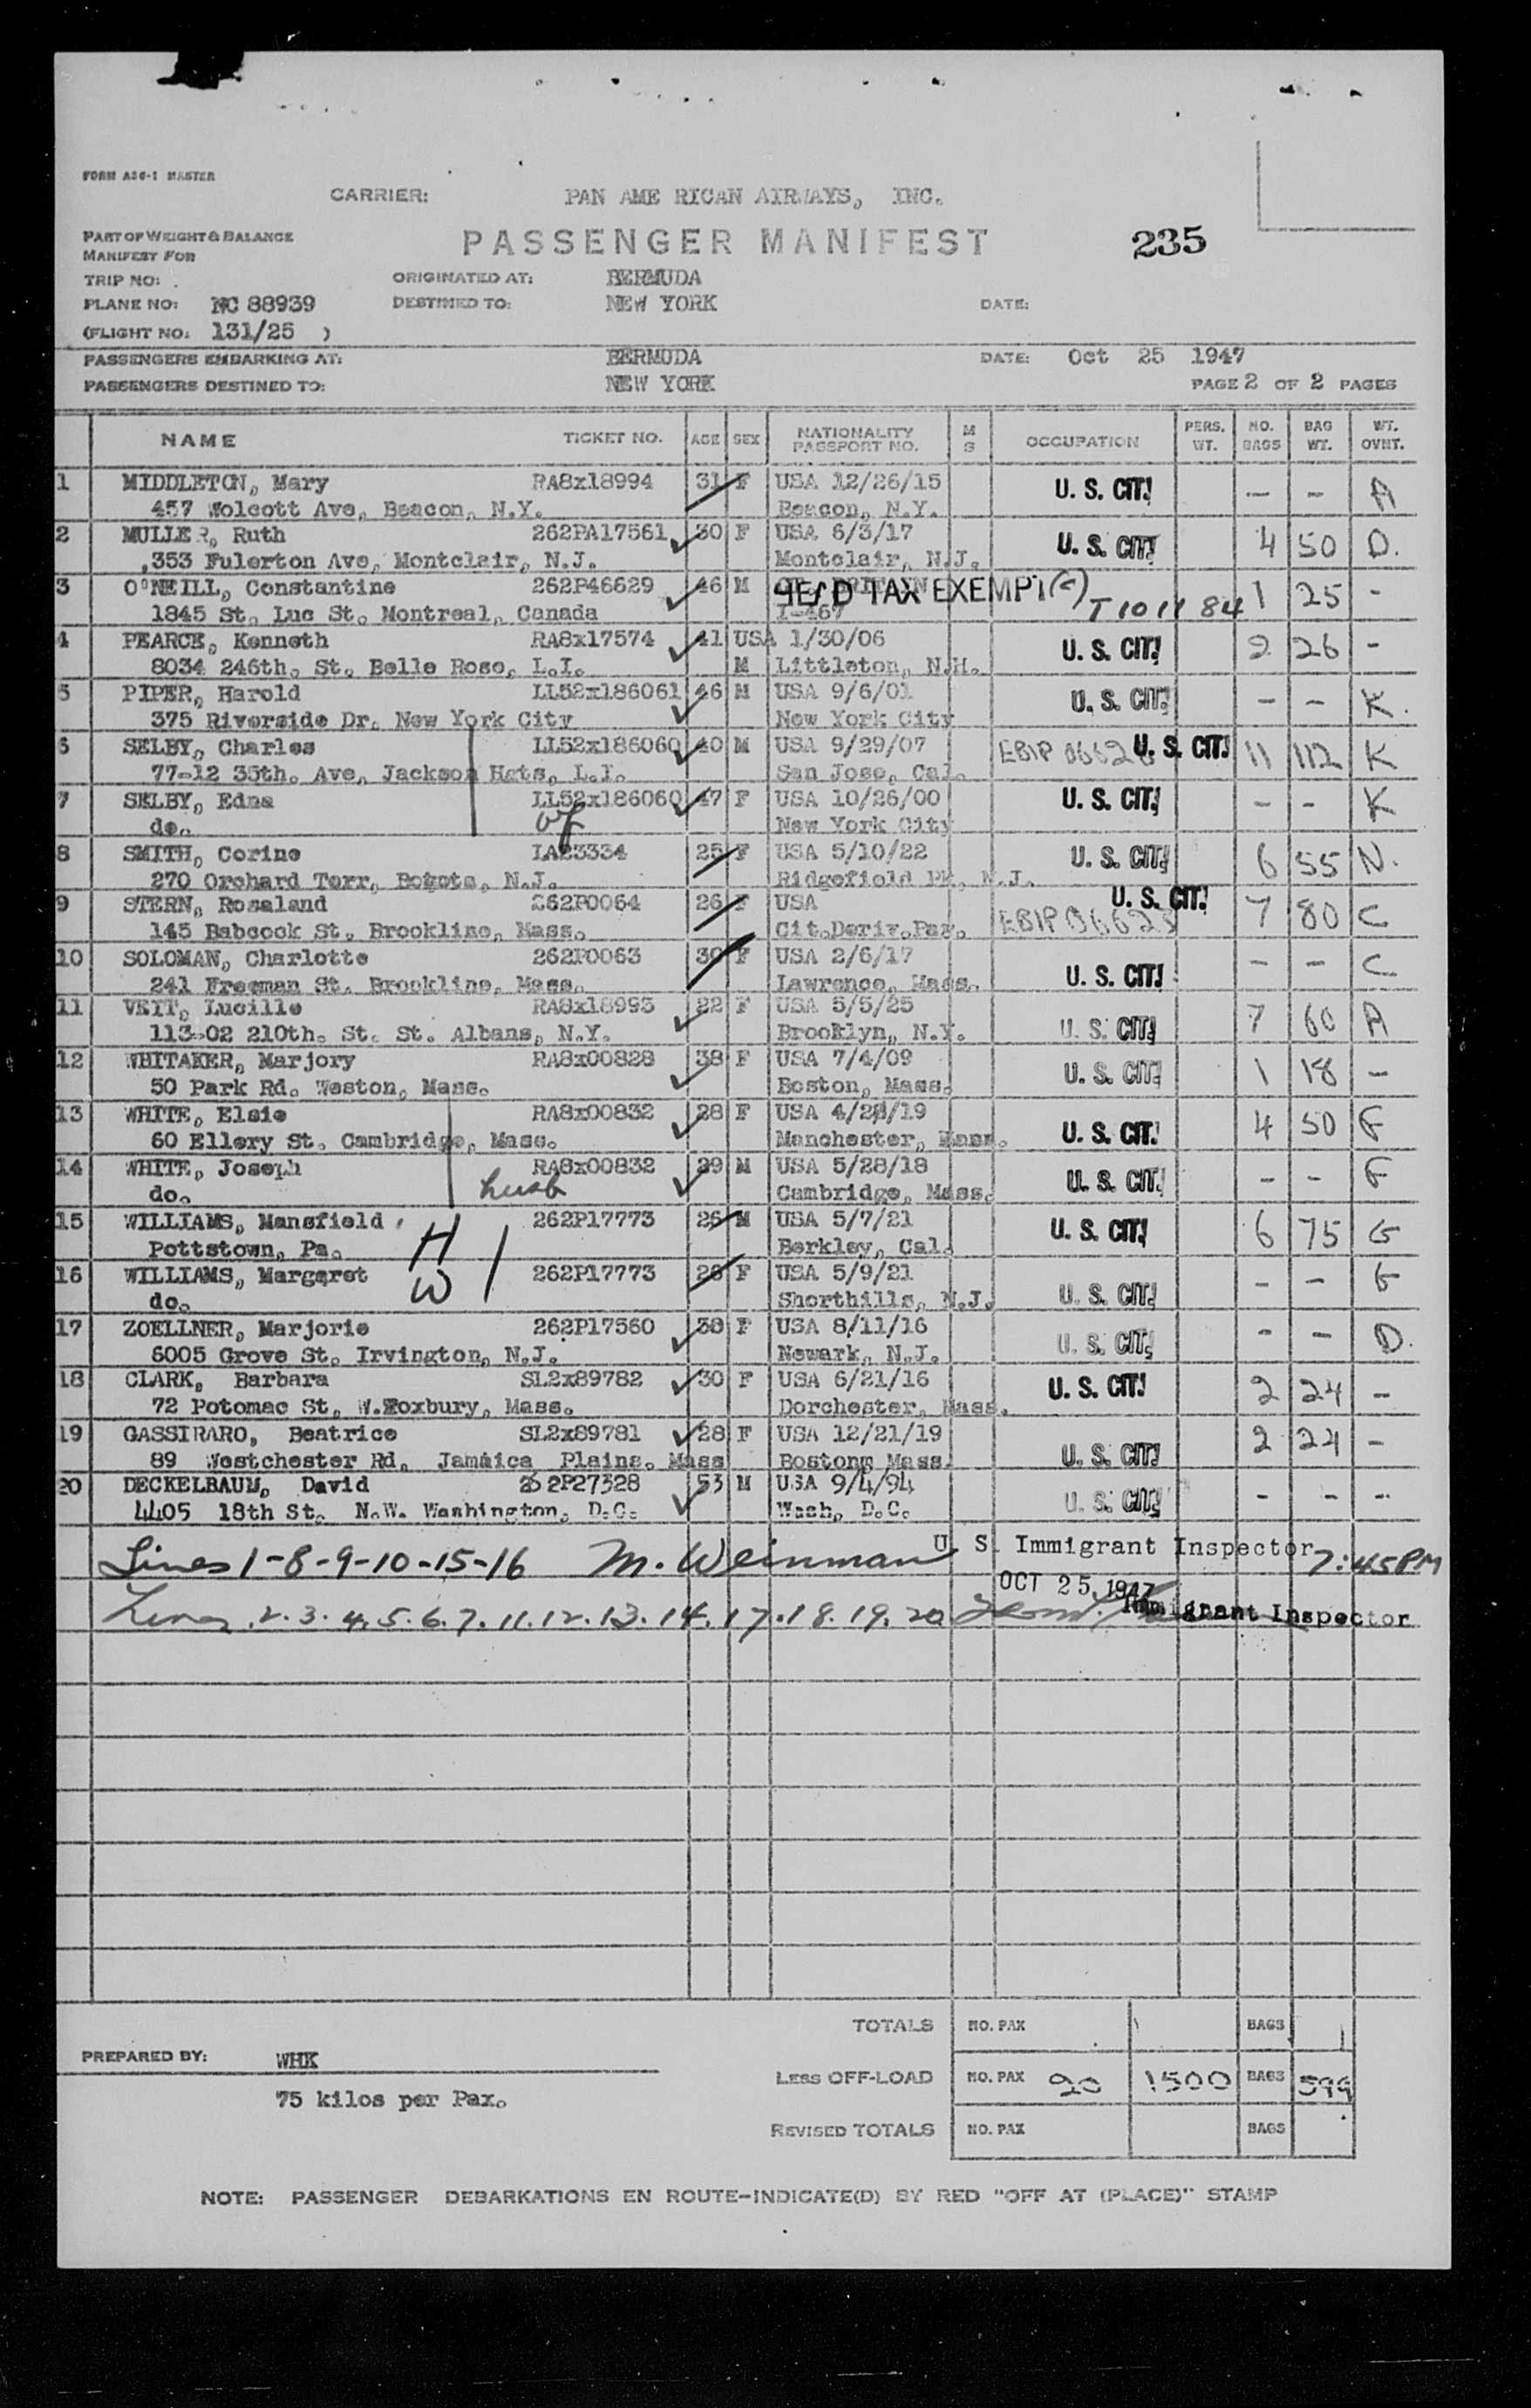 FORM A36-1 MASTER
CARRIER: PAN AME RICAN AIRWAYS, INC.
PART OF WEIGHT & BALANCE
MANIFEST FOR
PASSENGER MANIFEST 235
TRIP NO: . ORIGINATED AT: BERMUDA
PLANE NO: NC 88939 DESTINED TO: NEW YORK DATE:
(FLIGHT NO: 131/25 )
PASSENGERS EMBARKING AT: BERMUDA DATE: Oct 25 1947
PASSENGERS DESTINED TO: NEW YORK PAGE 2 OF 2 PAGES
NAME TICKET NO. AGE SEX NATIONALITY PASSPORT NO. M S OCCUPATION PERS. WT. NO. BAGS BAG WT. WT. OVNT.
1 MIDDLETON, Mary RA8x18994 31 F USA 12/26/15 U. S. CIT. — – A
457 Wolcott Ave, Beacon, N.Y. Beacon, N.Y.
2 MULLER, Ruth 262PA17561 30 F USA 6/3/17 U. S. CIT. 4 50 D.
353 Fulerton Ave, Montclair, N.J. Montclair, N.J.
3 O'NEILL, Constantine 262P46629 46 M GT. BRITAIN HEAD TAX EXEMPT 1 25 -
1845 St. Luc St. Montreal, Canada I-467 T101184
4 PEARCE, Kenneth RA8x17574 41 USA 1/30/06 U. S. CIT. 2 26 -
8034 246th. St. Belle Rose, L.I. M Littleton, N.H.
5 PIPER, Harold LL52x186061 46 M USA 9/6/01 U. S. CIT. - - K.
375 Riverside Dr. New York City New York City
6 SELBY, Charles LL52x186060 40 M USA 9/29/07 U. S. CIT. 11 112 K
77-12 35th. Ave, Jackson Hgts, L.I. San Jose, Cal.
7 SELBY, Edna LL52x186060 47 F USA 10/26/00 U. S. CIT. - - K
do. wf New York City
8 SMITH, Corine IA23334 25 F USA 5/10/22 U. S. CIT. 6 55 N.
270 Orchard Terr, Bogota, N.J. Ridgefield Pk, N.J.
9 STERN, Rosaland 262P0064 26 F USA U. S. CIT. 7 80 C
145 Babcock St. Brookline, Mass. Cit.Deriv.Par. EBIP 06628
10 SOLOMAN, Charlotte 262P0063 30 F USA 2/6/17 U. S. CIT. - - C
241 Freeman St. Brookline, Mass. Lawrence, Mass.
11 VEIT, Lucille RA8x18993 22 F USA 5/5/25 U. S. CIT. 7 60 A
113-02 210th. St. St. Albans, N.Y. Brooklyn, N.Y.
12 WHITAKER, Marjory RA8x00828 38 F USA 7/4/09 U. S. CIT. 1 18 -
50 Park Rd. Weston, Mass. Boston, Mass.
13 WHITE, Elsie RA8x00832 28 F USA 4/28/19 U. S. CIT. 4 50 F
60 Ellery St. Cambridge, Mass. Manchester, Mass.
14 WHITE, Joseph RA8x00832 29 M USA 5/28/18 U. S. CIT. - - F
do. husb Cambridge, Mass.
15 WILLIAMS, Mansfield H 262P17773 26 M USA 5/7/21 U. S. CIT. 6 75 G
Pottstown, Pa. Berkley, Cal.
16 WILLIAMS, Margaret W 262P17773 26 F USA 5/9/21 U. S. CIT. - - G
do. Shorthills, N.J.
17 ZOELLNER, Marjorie 262P17560 38 F USA 8/11/16 U. S. CIT. - - D.
6005 Grove St. Irvington, N.J. Newark, N.J.
18 CLARK, Barbara SL2x89782 30 F USA 6/21/16 U. S. CIT. 2 24 -
72 Potomac St, W.Roxbury, Mass. Dorchester, Mass.
19 GASSIRARO, Beatrice SL2x89781 28 F USA 12/21/19 U. S. CIT. 2 24 -
89 Westchester Rd, Jamaica Plains. Mass Boston, Mass.
20 DECKELBAUM, David 262P27328 53 M USA 9/4/94 U. S. CIT. - - -
4405 18th St. N.W. Washington, D.C. Wash, D.C.
Lines 1-8-9-10-15-16 M. Weinman U S. Immigrant Inspector 7:45PM
OCT 25, 1947
Lines 2.3.4.5.6.7.11.12.13.14.17.18.19.20 Immigrant Inspector
TOTALS NO. PAX BAGS
PREPARED BY: WHK
LESS OFF-LOAD NO. PAX 20 1500 BAGS 599
75 kilos per Pax.
REVISED TOTALS NO. PAX BAGS
NOTE: PASSENGER DEBARKATIONS EN ROUTE-INDICATE(D) BY RED "OFF AT (PLACE)" STAMP